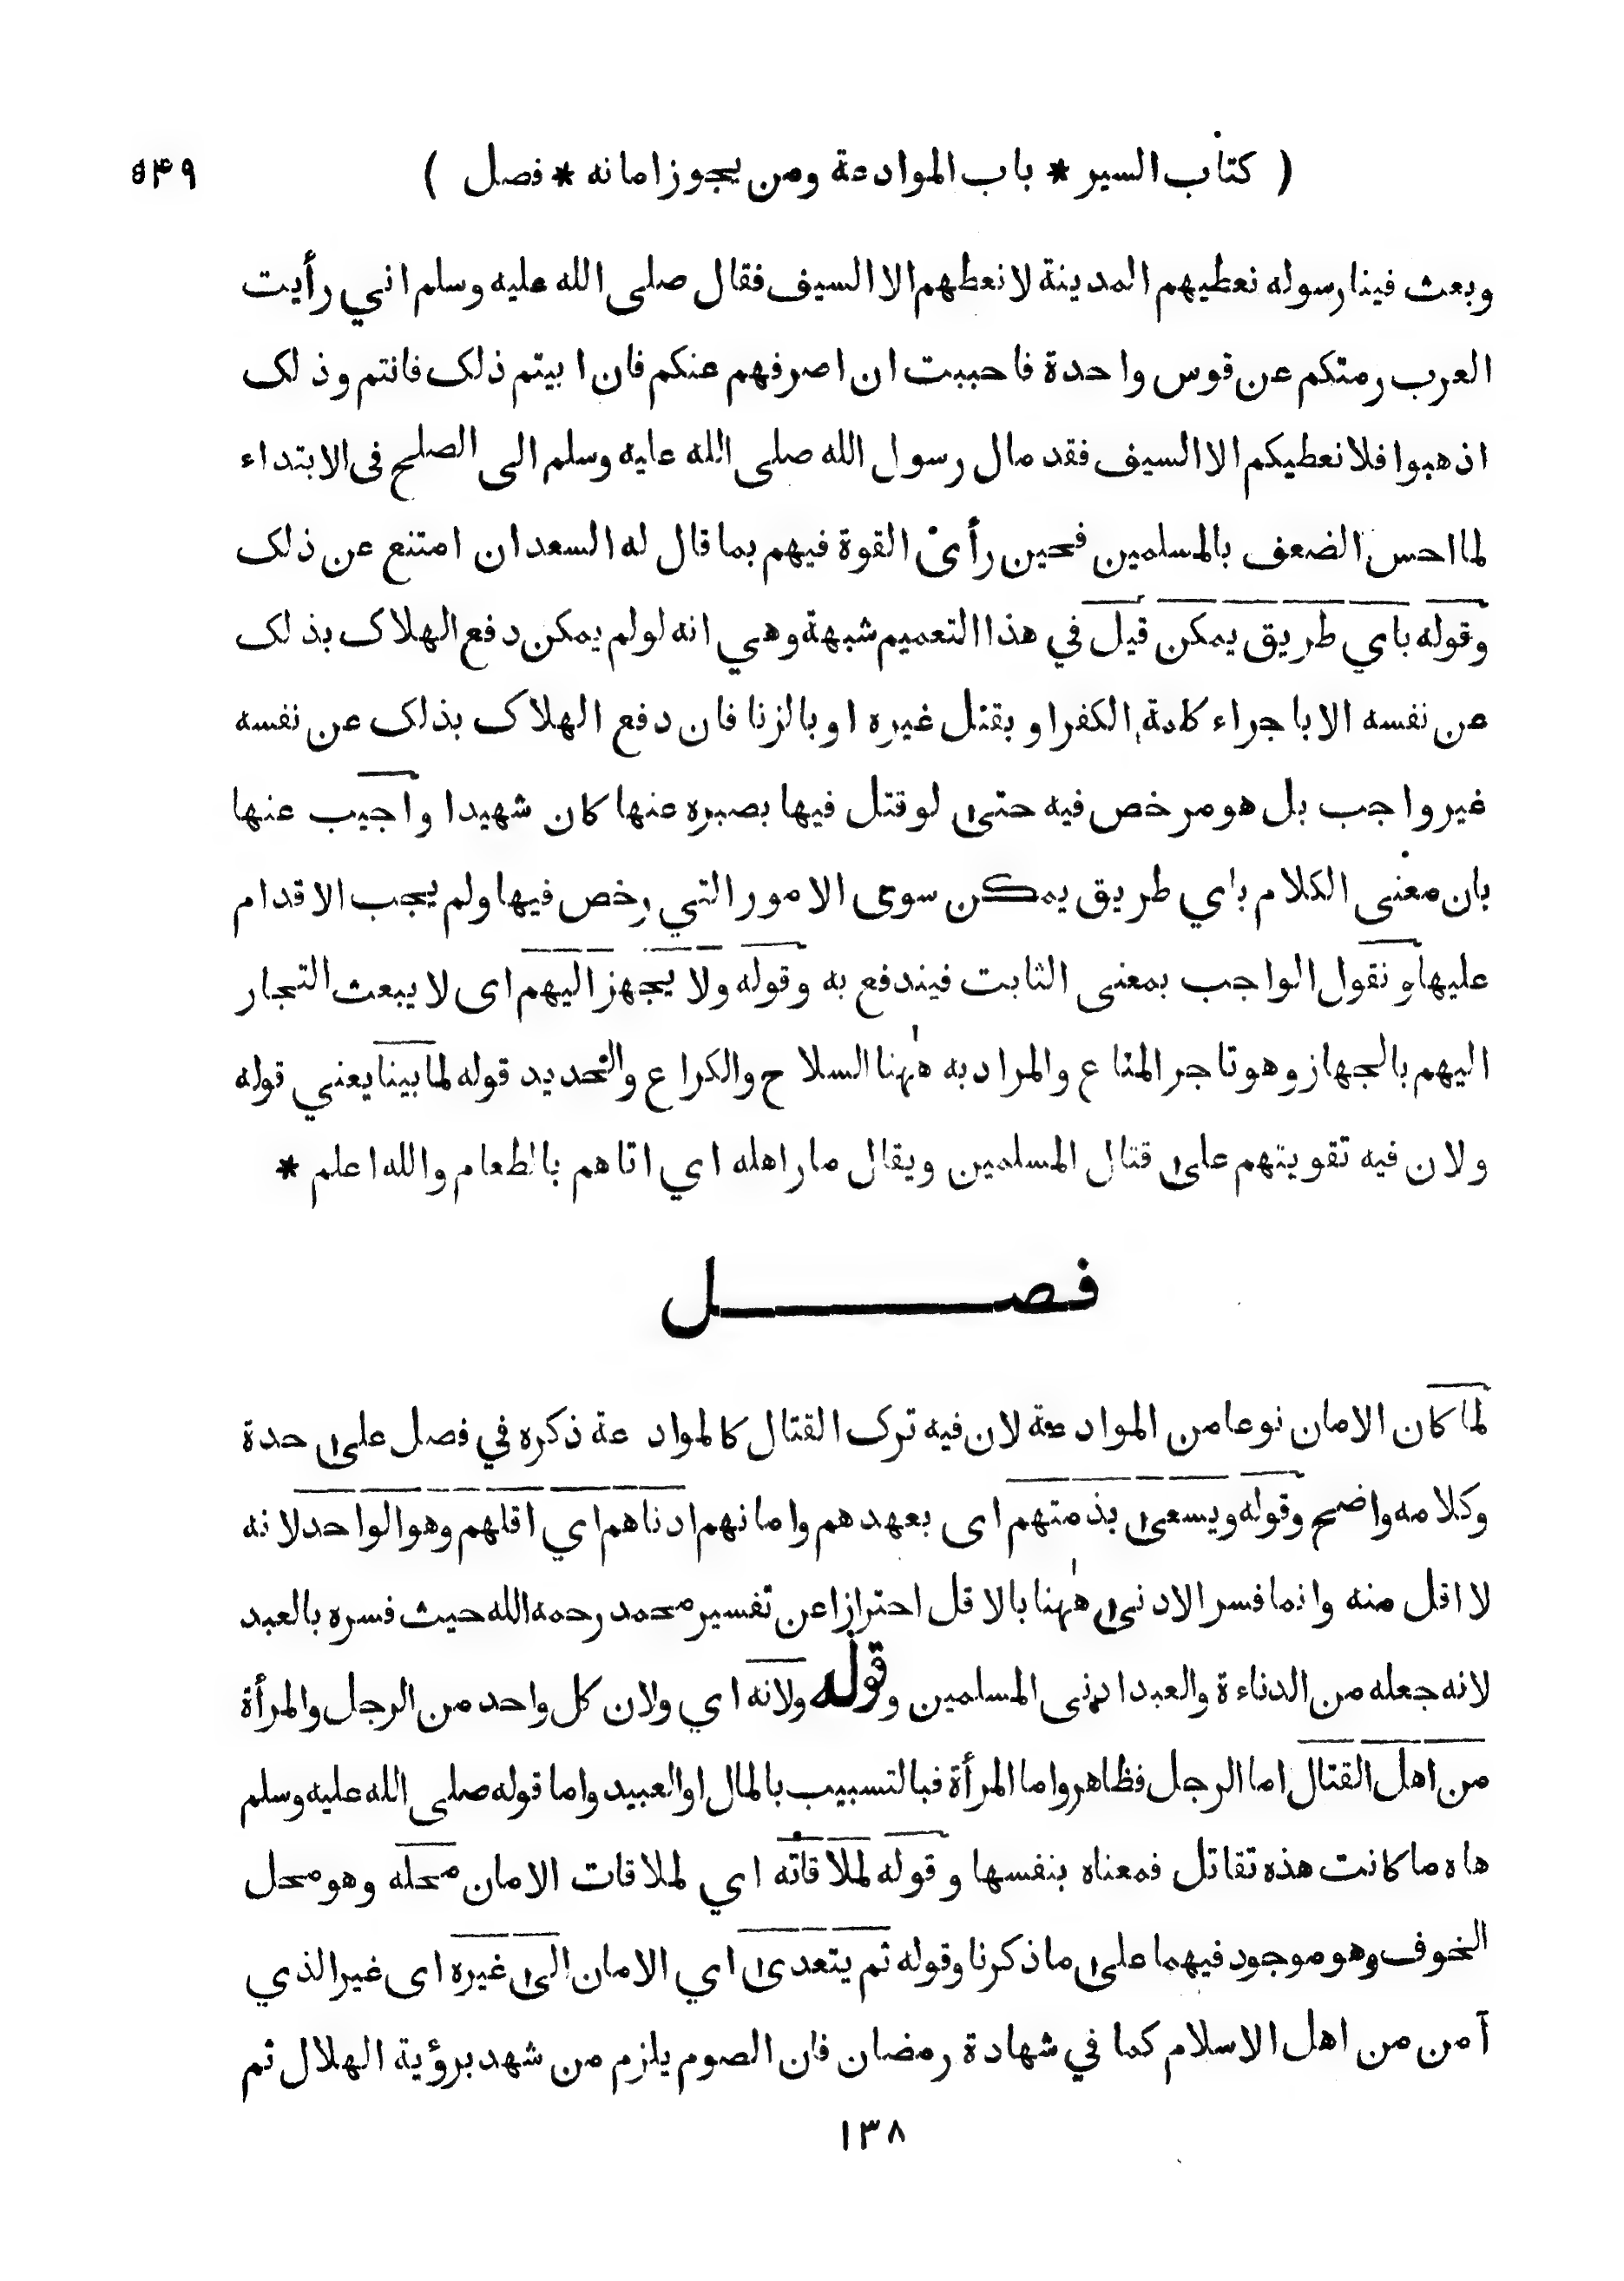 ( كتاب السير * باب الموادعة ومن يجوز امانه * فصل ) ٥۴٩
وبعث فينا رسوله نعطيهم المدينة لا نعطهم الا السيف فقال صلى الله عليه وسلم اني رأيت
العرب رمتكم عن قوس واحدة فاحببت ان اصرفهم عنكم فان ابيتم ذلك فانتم وذلك
اذهبوا فلا نعطيكم الا السيف فقد مال رسول الله صلى الله عليه وسلم الى الصلح فى الابتداء
لما احس الضعف بالمسلمين فحين رأى القوة فيهم بما قال له السعدان امتنع عن ذلك
وقوله باي طريق يمكن قيل في هذا التعميم شبهة وهي انه لو لم يمكن دفع الهلاك بذلك
عن نفسه الا باجراء كلمة الكفر او بقتل غيره او بالزنا فان دفع الهلاك بذلك عن نفسه
غير واجب بل هو مرخص فيه حتى لو قتل فيها بصبره عنها كان شهيدا واجيب عنها
بان معنى الكلام باي طريق يمكن سوى الامور التي رخص فيها ولم يجب الاقدام
عليها او نقول الواجب بمعنى الثابت فيندفع به وقوله ولا يجهز اليهم اى لا يبعث التجار
اليهم بالجهاز وهو تاجر المتاع والمراد به ههنا السلاح والكراع والحديد قوله لما بينا يعني قوله
ولان فيه تقويتهم على قتال المسلمين ويقال مار اهله اي اتاهم بالطعام والله اعلم *
فصل
لما كان الامان نوعا من الموادعة لان فيه ترك القتال كالموادعة ذكره في فصل على حدة
وكلامه واضح وقوله ويسعى بذمتهم اى بعهدهم وامانهم ادناهم اي اقلهم وهو الواحد لانه
لا اقل منه وانما فسر الادنى ههنا بالاقل احترازا عن تفسير محمد رحمه الله حيث فسره بالعبد
لانه جعله من الدناءة والعبد ادنى المسلمين وقوله ولانه اي ولان كل واحد من الرجل والمرأة
من اهل القتال اما الرجل فظاهر واما المرأة فبالتسبيب بالمال او العبيد واما قوله صلى الله عليه وسلم
هاه ما كانت هذه تقاتل فمعناه بنفسها وقوله لملاقاته اي لملاقات الامان محله وهو محل
الخوف وهو موجود فيهما على ما ذكرنا وقوله ثم يتعدى اي الامان الى غيره اى غير الذي
آمن من اهل الاسلام كما في شهادة رمضان فان الصوم يلزم من شهد برؤية الهلال ثم
١٣٨